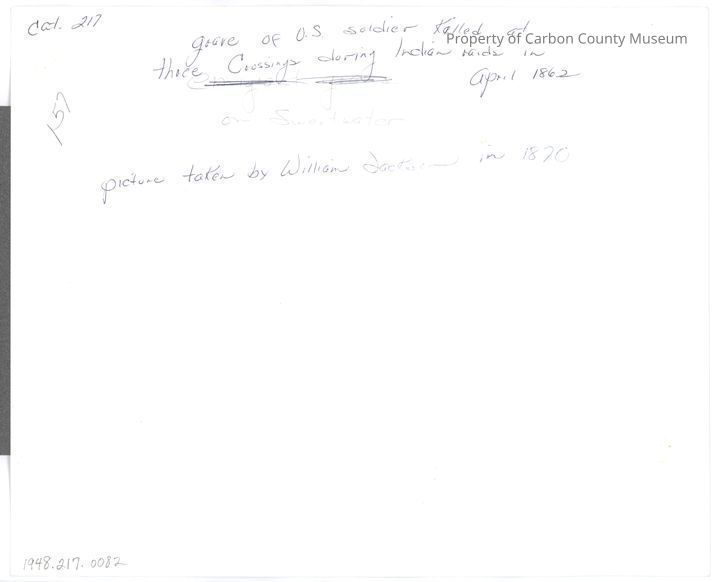 Cat. 217
grave of U.S. soldier killed at
Property of Carbon County Museum
three Crossings during Indian raids in
April 1862
157
on Sweetwater
picture taken by William Jackson in 1870
1948.217.0082